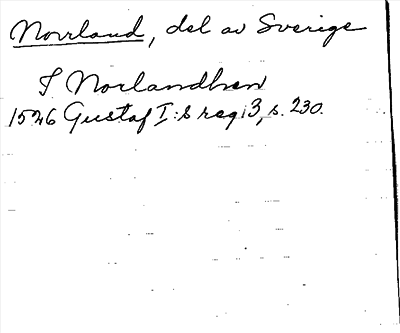 Norrland, del av Sverige
I Norlandhen
1526 Gustaf I:s reg 3, s. 230.